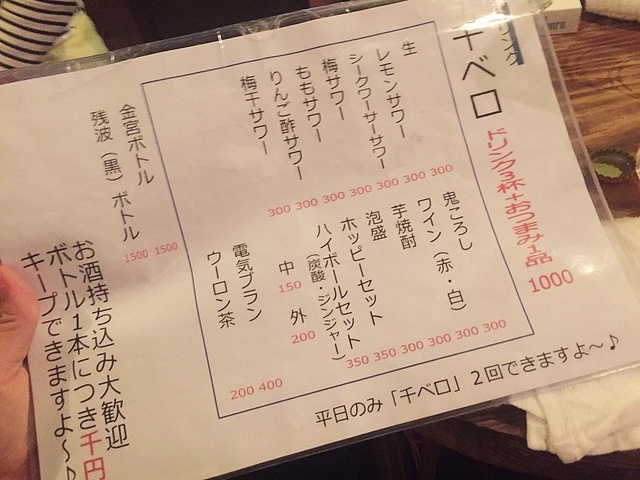 ドリンク
千ベロ
ドリンク3杯+おつまみ1品
1000
生
レモンサワー
シークワーサーサワー
梅サワー
ももサワー
りんご酢サワー
梅干サワー
300 300 300 300 300 300 300
鬼ころし
ワイン(赤・白)
芋焼酎
泡盛
ホッピーセット
ハイボールセット
(炭酸・ジンジャー)
中 150
外 200
電気ブラン
ウーロン茶
200 400
350 350 300 300 300 300
金宮ボトル
残波(黒)ボトル
1500 1500
お酒持ち込み大歓迎
ボトル1本につき千円
キープできますよ〜♪
平日のみ「千ベロ」2回できますよ〜♪